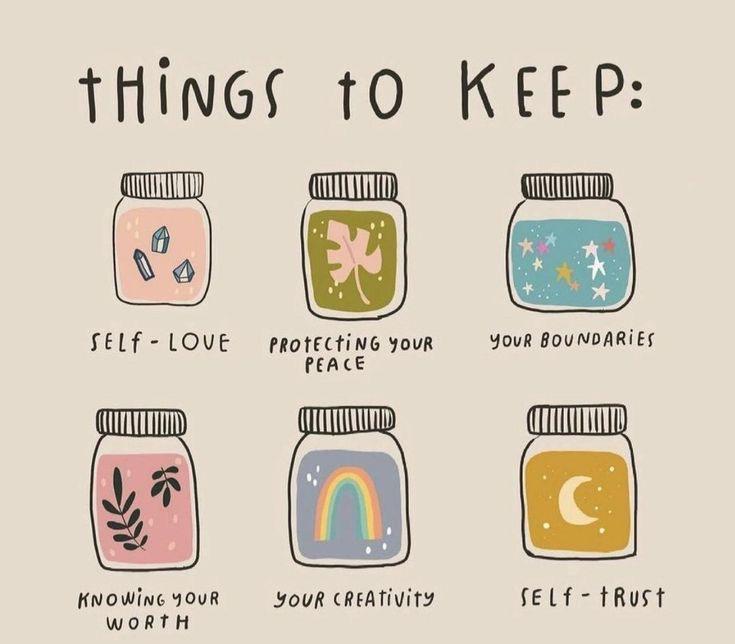 tHiNGS tO KEEP:
SELf - LOVE
PROtECtiNG YOUR
PEACE
YOUR BOUNDARiES
KNOWiNG YOUR
WORtH
YOUR CREAtiViTY
SELf - tRUSt